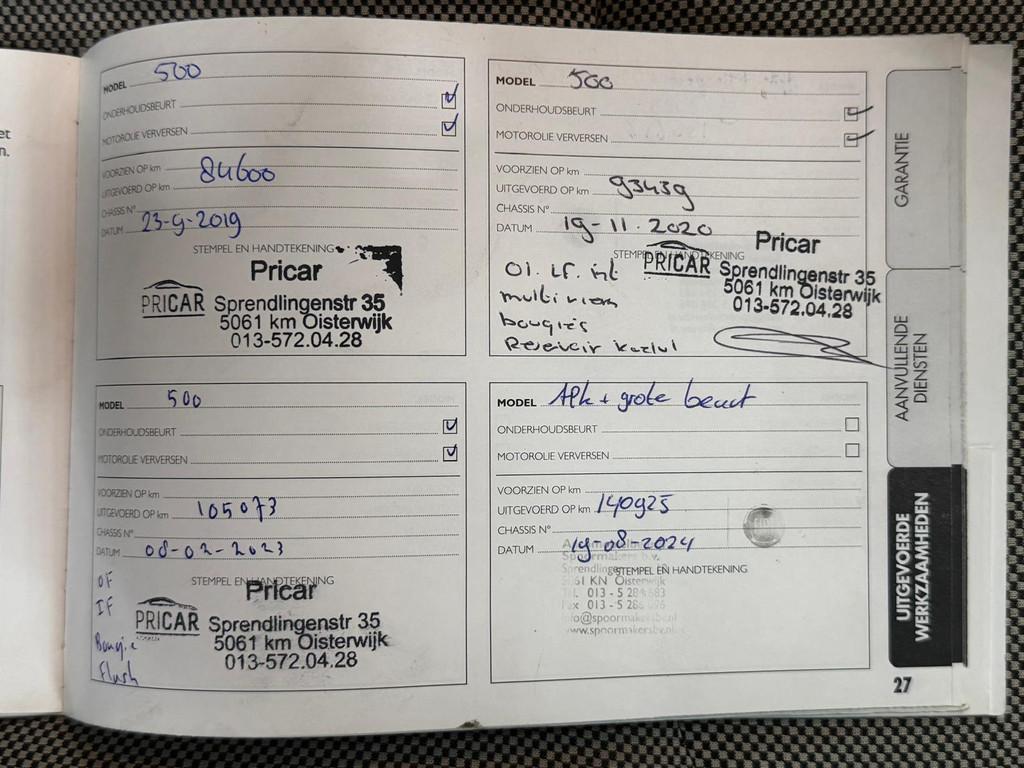 et
n.
MODEL 500
ONDERHOUDSBEURT
MOTOROLIE VERVERSEN
VOORZIEN OP km
UITGEVOERD OP km 84600
CHASSIS N°
DATUM 23-9-2019
STEMPEL EN HANDTEKENING
Pricar
PRICAR Sprendlingenstr 35
5061 km Oisterwijk
013-572.04.28
MODEL 500
ONDERHOUDSBEURT
MOTOROLIE VERVERSEN
VOORZIEN OP km
UITGEVOERD OP km 93439
CHASSIS N°
DATUM 19-11.2020
STEMPEL EN HANDTEKENING
Pricar
PRICAR Sprendlingenstr 35
5061 km Oisterwijk
013-572.04.28
Ol. Lf. int
multiriem
bougies
Reservoir
MODEL 500
ONDERHOUDSBEURT
MOTOROLIE VERVERSEN
VOORZIEN OP km
UITGEVOERD OP km 105073
CHASSIS N°
DATUM 08-02-2023
STEMPEL EN HANDTEKENING
Pricar
PRICAR Sprendlingenstr 35
5061 km Oisterwijk
013-572.04.28
OF
IF
Bougie
Flush
MODEL APK + grote beurt
ONDERHOUDSBEURT
MOTOROLIE VERVERSEN
VOORZIEN OP km
UITGEVOERD OP km 140925
CHASSIS N°
DATUM 19-08-2024
Spoormakers b.v.
STEMPEL EN HANDTEKENING
5061 KN Oisterwijk
info@spoormakersbv.nl
www.spoormakersbv.nl
GARANTIE
AANVULLENDE
DIENSTEN
UITGEVOERDE
WERKZAAMHEDEN
27